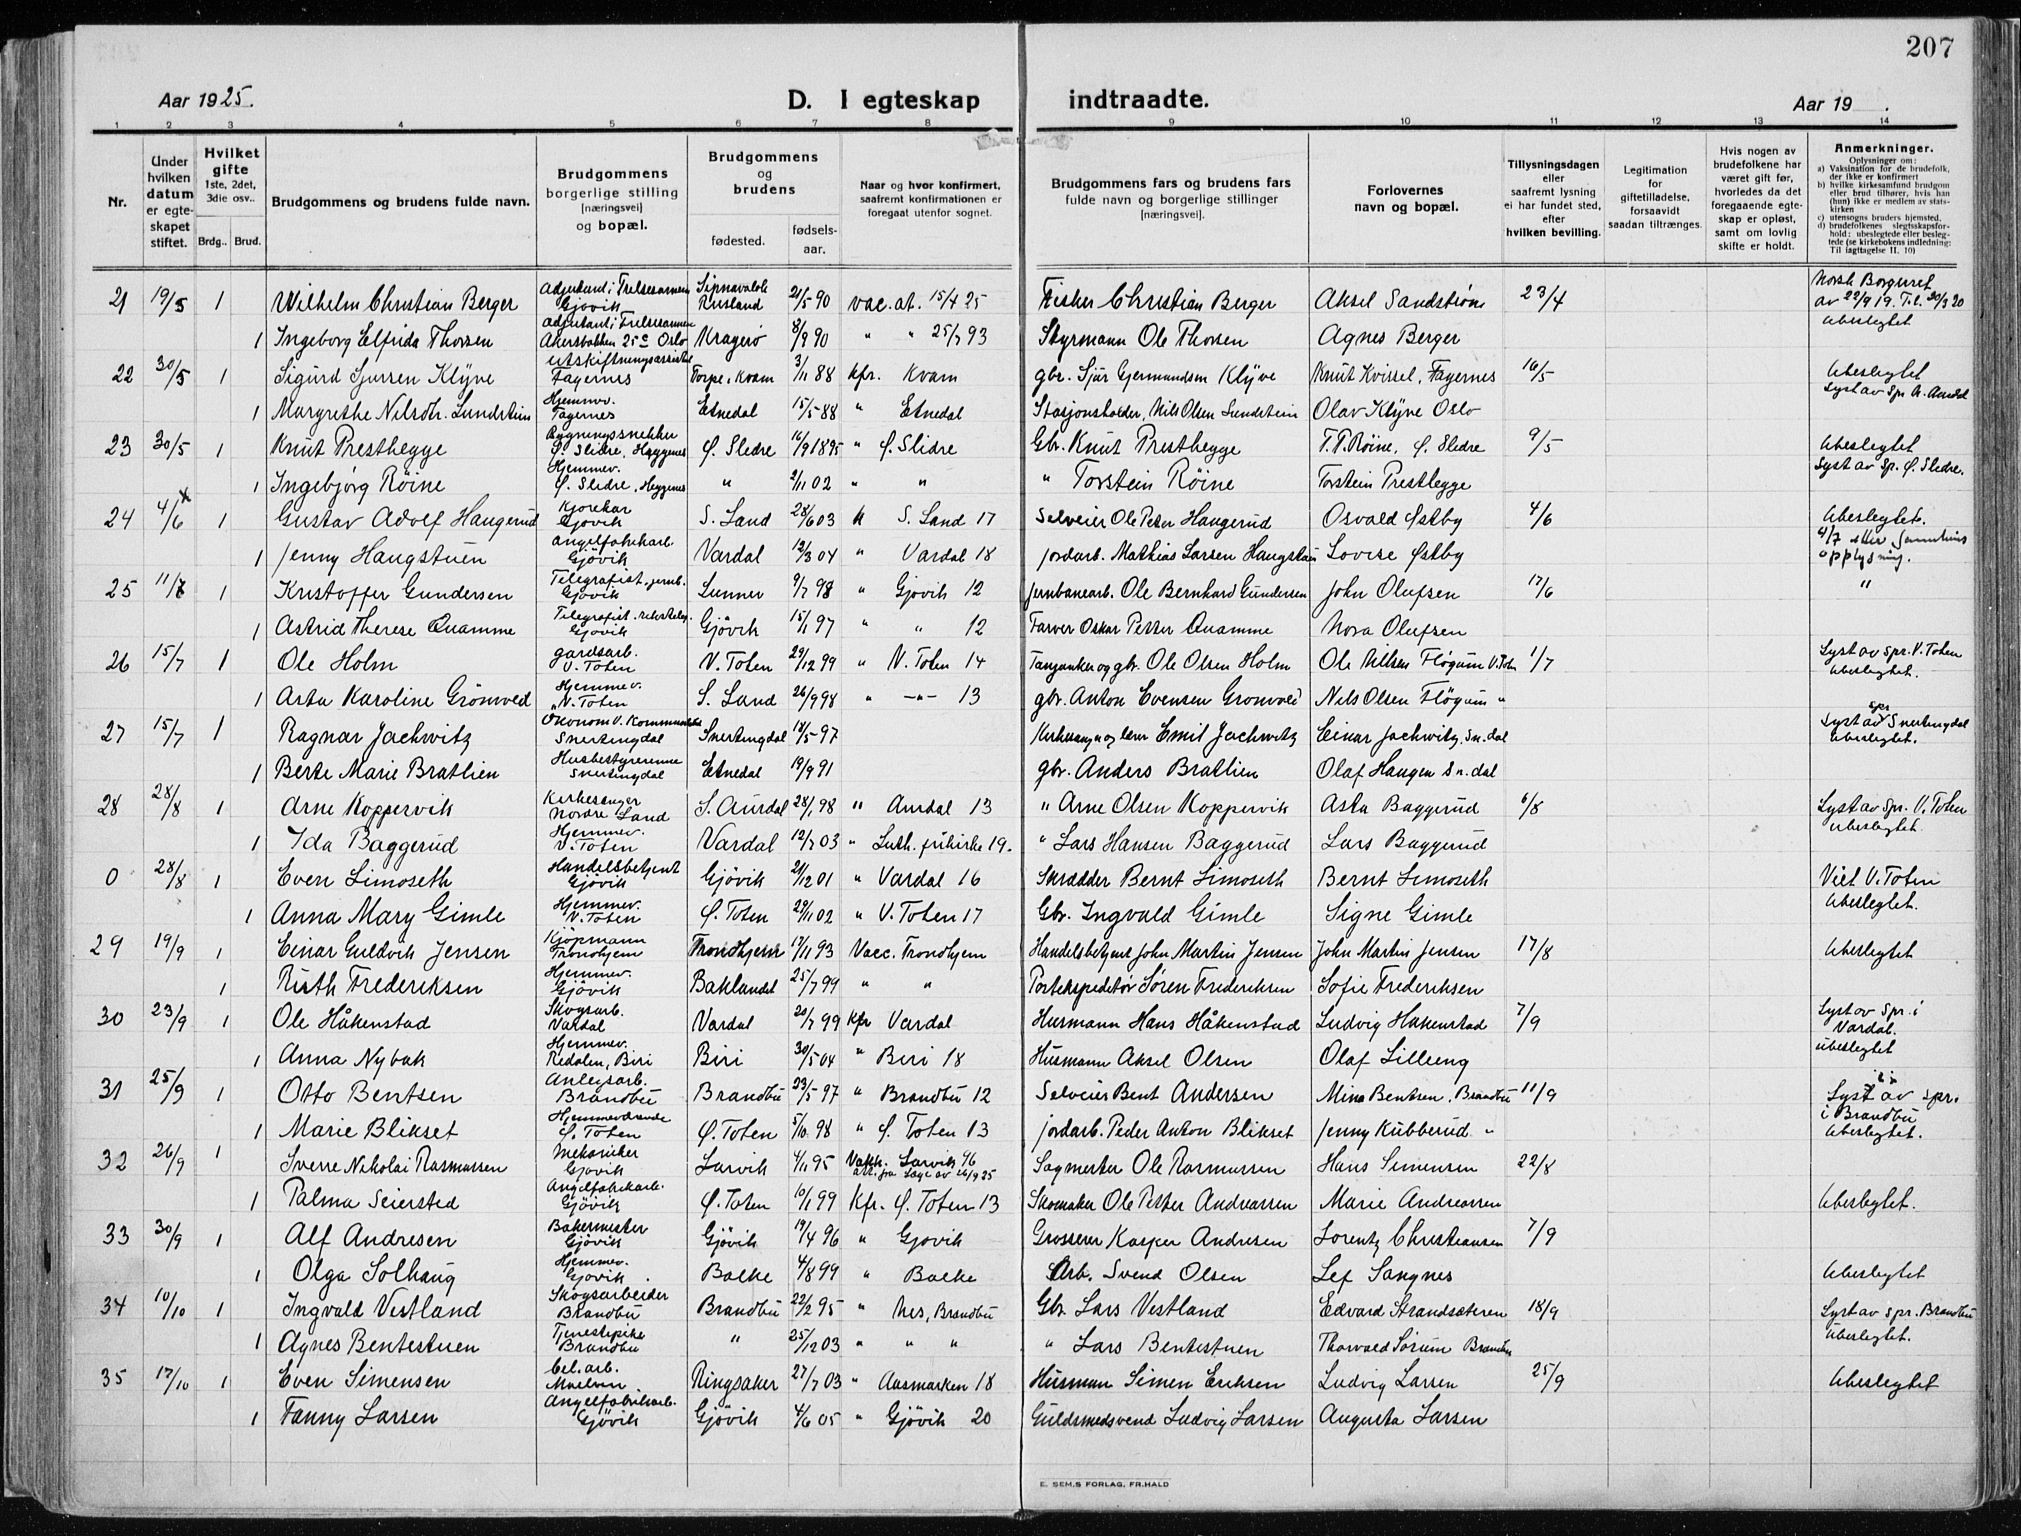 207
Aar 1925. D. I egteskap indtraadte. Aar 19 .
1 2 3 4 5 6 7 8 9 10 11 12 13 14
Nr.
Under hvilken datum er egte-skapet stiftet.
Hvilket gifte 1ste, 2det, 3die osv..
Brdg.. Brud.
Brudgommens og brudens fulde navn.
Brudgommens borgerlige stilling [næringsvei] og bopæl.
Brudgommens og brudens
fødested. fødsels-aar.
Naar og hvor konfirmert, saafremt konfirmationen er foregaat utenfor sognet.
Brudgommens fars og brudens fars fulde navn og borgerlige stillinger [næringsvei].
Forlovernes navn og bopæl.
Tillysningsdagen eller saafremt lysning ei har fundet sted, efter hvilken bevilling.
Legitimation for giftetilladelse, forsaavidt saadan tiltrænges.
Hvis nogen av brudefolkene har været gift før, hvorledes da det foregaaende egte-skap er opløst, samt om lovlig skifte er holdt.
Anmerkninger.
Oplysninger om:
a) Vaksination for de brudefolk, der ikke er konfirmert
b) hvilke kirkesamfund brudgom eller brud tilhører, hvis han (hun) ikke er medlem av stats-kirken
c) utensogns bruders hjemsted.
d) brudefolkenes slegtsskapsfor-hold: ubeslegtede eller besleg-tede (se kirkebokens indledning: Til iagttagelse II. 10)
21 19/5 1 Wilhelm Christian Berger Adjutant i Frelsesarmeen Gjøvik Rusland 21/5 90 vac. at. 15/4 25 Fisker Christian Berger Aksel Sandstrøm 23/4 Norsk Borgerret av 22/9 19.
1 Ingeborg Elfrida Thorsen Adjutant i Frelsesarmeen Akersbakken 25 Oslo Kragerö 8/9 90 " " 25/7 93 Styrmann Ole Thorsen Agnes Berger Ubeslegtet
22 30/5 1 Sigurd Sjursen Klÿve Fagernes Torpe, Kvam 3/11 88 kfr. Kvam gbr. Sjur Gjermundsen Klÿve Knut Kvissel, Fagernes 16/5 Ubeslegtet
1 Margrethe Nilsdtr. Sundstein Hjemmev. Fagernes Etnedal 15/5-88 " Etnedal Stasjonsholder, Nils Olsen Sundstein Olav Klÿve Oslo Lyst av Spr. A. Aurdal
23 30/5 1 Knut Presthegge Bygningssnekker Ø. Slidre, Heggenes Ø. Sledre 16/9 1895 " Ø. Slidre Gbr. Knut Presthegge T. T. Röine, Ø. Sledre 9/5 Ubeslegtet
1 Ingebjørg Röine Hjemmev. Ø. Slidre, Heggenes " 2/11 02 " " " Torstein Röine Torstein Presthegge Lyst av Sp. Ø. Sledre.
24 4/6 1 Gustav Adolf Haugerud Kjørekar Gjøvik S. Land 28/6 03 k S. Land 17 Selveier Ole Peter Haugerud Osvald Østby 4/6 Ubeslegtet.
1 Jenny Haugstuen Angelfabrikarb. Gjövik Vardal 12/3 04 " Vardal 18 jordarb. Mathias Larsen Haugstuen Lovise Østby opplysning.
25 11/7 1 Kristoffer Gundersen Telegrafist, jernb. Gjøvik Lunner 9/7 98 " Gjøvik 12 Jernbanearb. Ole Bernhard Gundersen John Olufsen 17/6 "
1 Astrid Therese Quamme Gjøvik Gjövik 15/1 97 " " 12 Farver Oskar Petter Quamme Nora Olufsen
26 15/7 1 Ole Holm gardsarb. V. Toten V. Toten 29/12 99 " V. Toten 14 gbr. Ole Olsen Holm Ole Nilsen Flögum V. Toten 1/7 Lyst av spr. V. Toten Ubeslegtet.
1 Asta Karoline Grönvold Hjemmev. V. Toten S. Land 26/9 98 " -"- 13 gbr. Anton Evensen Gronvold Nils Olsen Flögum "
27 15/7 1 Ragnar Jachwitz Snertingdal Snertingdal 18/5-97 Emil Jachwitz Einar Jachwitz, Sn.dal Lyst av spr Snertingdal Ubeslegtet.
1 Berte Marie Bratlien Husbestyrerinne Snertingdal Etnedal 19/9 91 gbr. Anders Bratlien Olaf Haugen Sn.dal
28 28/8 1 Arne Koppervik Kirkesanger Nordre Land S. Aurdal 28/1 98 " Aurdal 13 " Arne Olsen Koppervik Asta Baggerud 6/8 Lyst av Spr. V. Toten Ubeslegtet.
1 Ida Baggerud Hjemmev. V. Toten Vardal 12/7 03 " Luth. frikirke 19. " Lars Hansen Baggerud Lars Baggerud
0 28/8 1 Even Limoseth Handelsbetjent Gjövik Gjövik 21/12 01 " Vardal 16 Skrædder Bernt Limoseth Bernt Limoseth Viet V. Toten
1 Anna Mary Gimle Hjemmev. V. Toten Ø. Toten 29/11 02 " V. Toten 17 Gbr. Ingvald Gimle Signe Gimle Ubeslegtet.
29 19/9 1 Einar Guldvik Jensen Kjöpmann Trondhjem Trondhjem 17/11 93 Vacc. Trondhjem Handelsbetjent John Martin Jensen John Martin Jensen 17/8 Ubeslegtet
1 Ruth Frederiksen Hjemmev. Gjøvik Baklandet 25/7 99 " " Søren Frederiksen Sofie Frederiksen
30 23/9 1 Ole Håkenstad Skogsarb. Vardal Vardal 20/7 99 kfr Vardal Husmann Hans Håkenstad Ludvig Hakenstad 7/9 Lyst av spr. i Vardal.
1 Anna Nybak Hjemmev. Redalen, Biri Biri 30/5 04 " Biri 18 Husmann Aksel Olsen Olaf Lilleeng ubeslegtet
31 25/9 1 Otto Bentsen Anlegsarb. Brandbu Brandbu 23/5-97 " Brandbu 12 Selveier Bent Andersen Mina Bentsen, Brandbu 11/9 Lyst av spr. i Brandbu
1 Marie Blikset Hjemmeværende Ø. Toten Ø. Toten 5/10 98 " Ø. Toten 13 jordarb. Peder Anton Blikset Jenny Kubberud " Ubeslegtet.
32 26/9 1 Sverre Nikolai Rasmussen Mekaniker Gjøvik Larvik 4/1 95 Vakk. Larvik 96 att. fra Læge av 26/9 25 Sagmester Ole Rasmussen Hans Simensen 22/8
1 Palma Seiersted Angelfabrikarb. Gjövik Ø. Toten 10/1 99 Kfr. Ø. Toten 13 Skomaker Ole Petter Andreassen Marie Andreassen Ubeslegtet.
33 30/9 1 Alf Andresen Bakermester Gjövik Gjövik 19/4 96 " Gjøvik Grosserer Kasper Andresen Lorentz Christiansen 7/9
1 Olga Solhaug Hjemmev. Gjøvik Balke 4/8 99 " Balke Arb. Svend Olsen Lef Sangnes Ubeslegtet
34 10/10 1 Ingvald Vestland Skogsarbeider Brandbu Brandbu 22/2 95 " Nes, Brandbu Gbr Lars Vestland Edvard Strandsæteren 18/9 Lyst av Spr. Brandbu
1 Agnes Bentestuen Tjenestepike Brandbu " 25/12 03 " " " " Lars Bentestuen Thorvald Sörum Brandbu Ubeslegtet.
35 17/10 1 Even Simensen Cel. arb. Moelven Ringsaker 27/7 03 " Aasmarken 18 Husman Simen Eriksen Ludvig Larsen 25/9 Ubeslegtet
1 Fanny Larsen Angelfabrikarb. Gjövik Gjövik 4/6 05 " Gjövik 20 Guldsmedsvend Ludvig Larsen Augusta Larsen
E. SEM.S FORLAG, FR.HALD